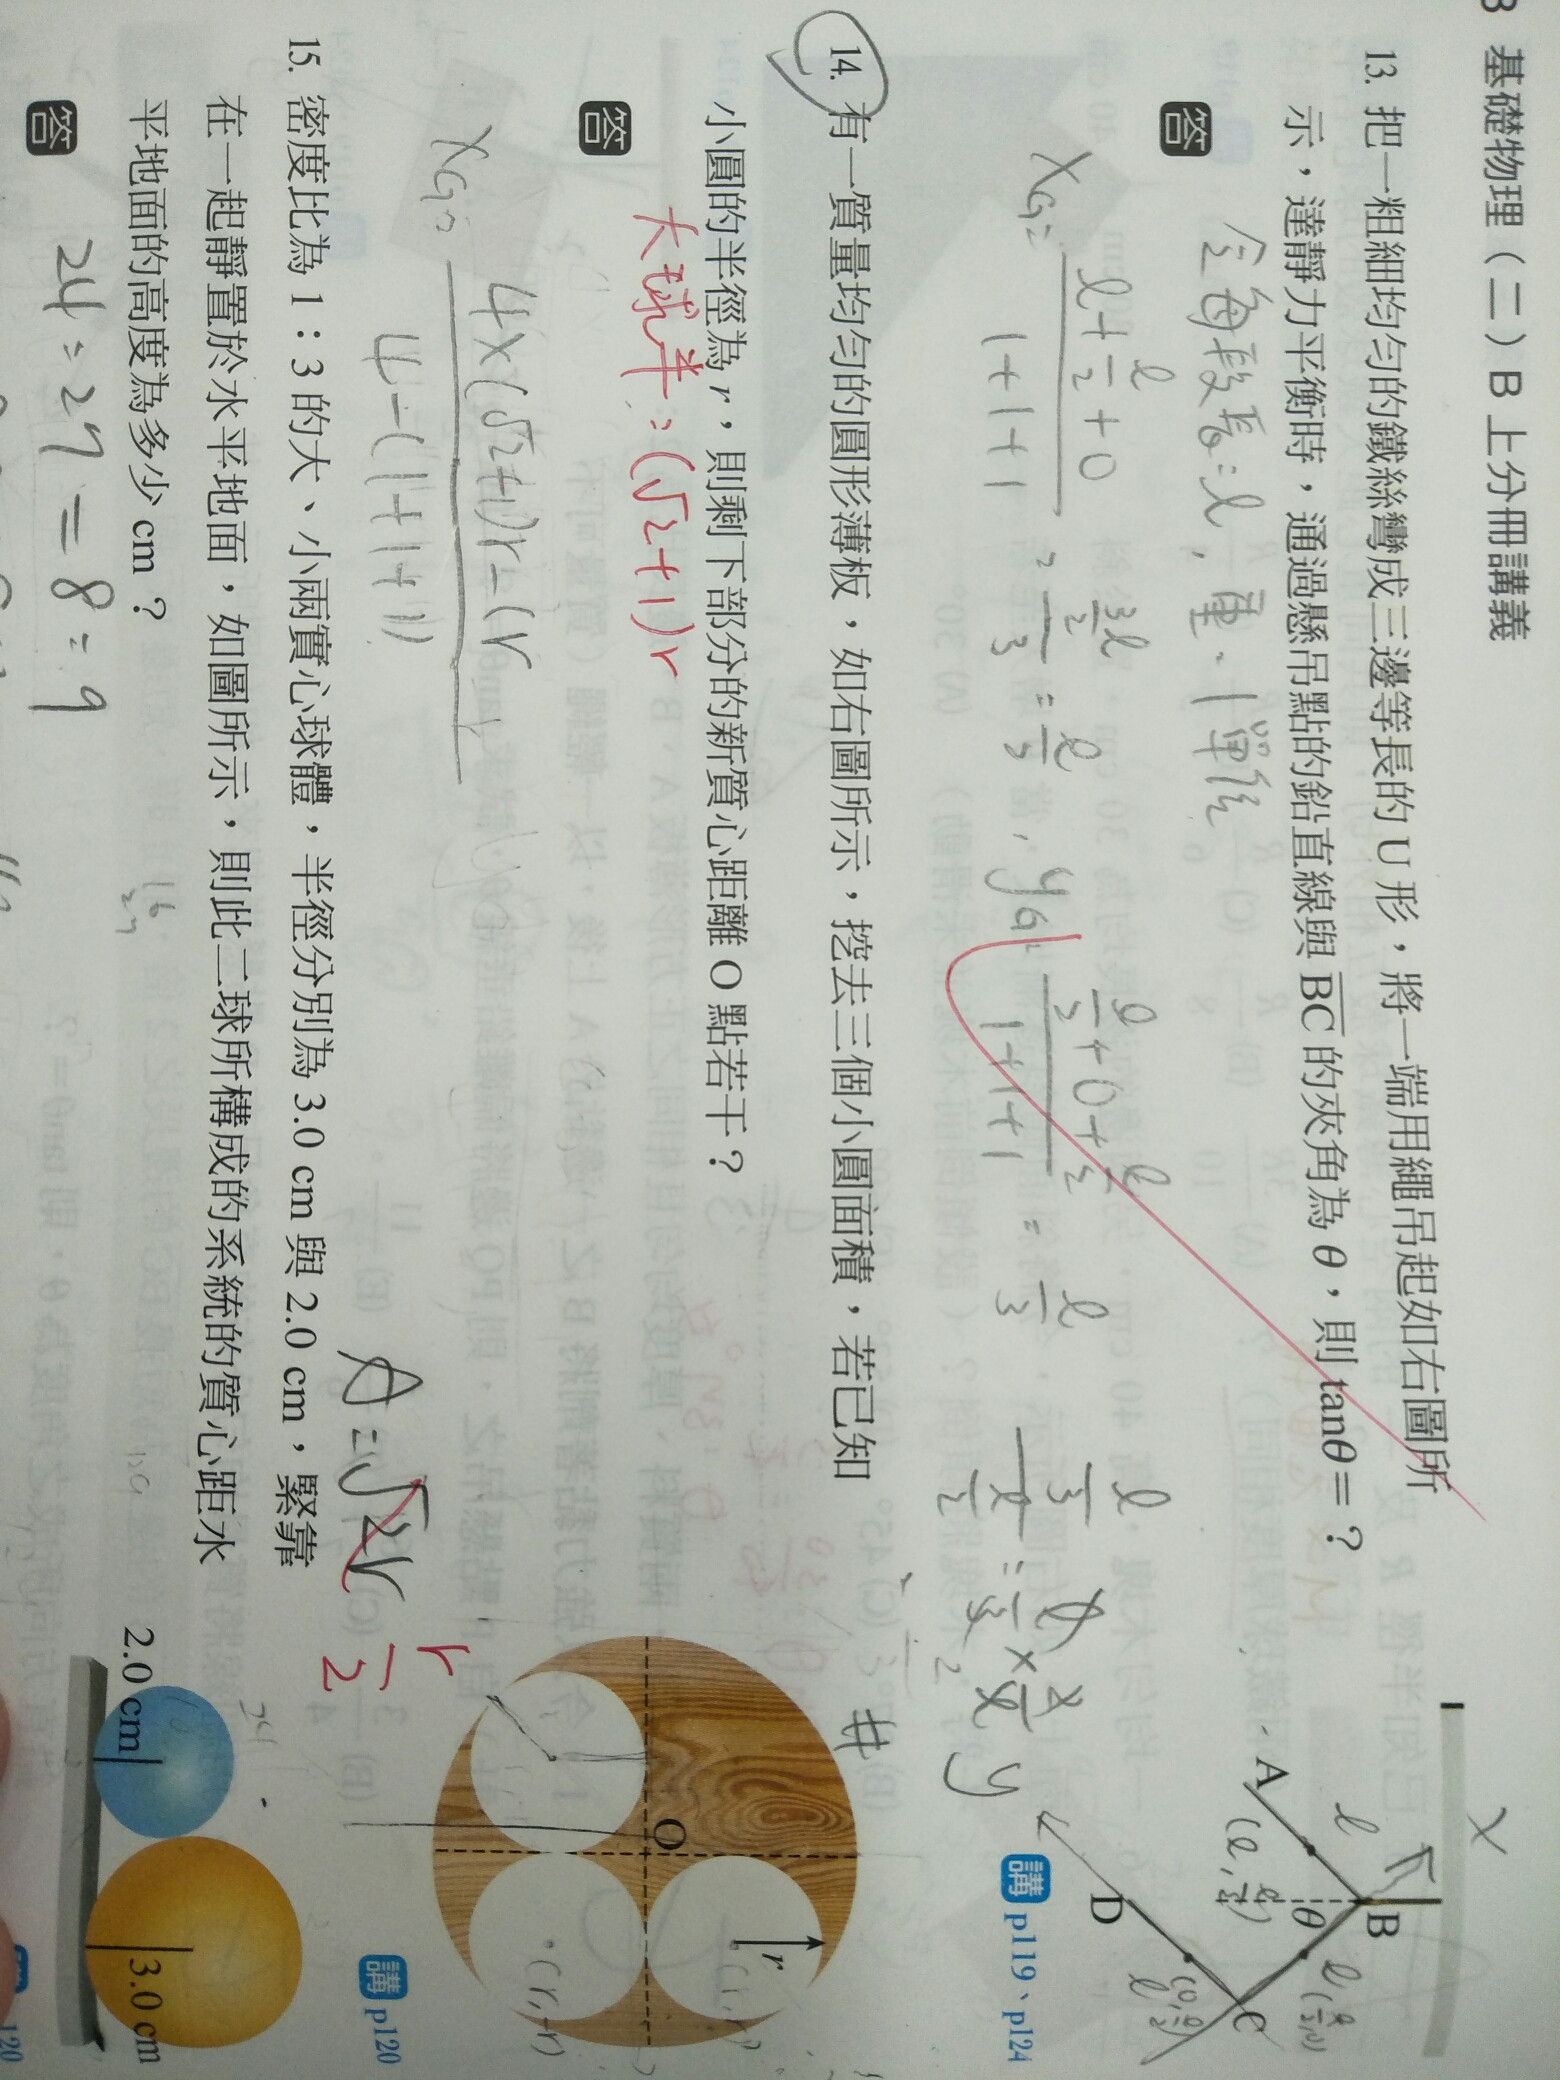 3 基礎物理（二）B 上分冊講義
13. 把一粗細均勻的鐵絲彎成三邊等長的 U 形，將一端用繩吊起如右圖所
示，達靜力平衡時，通過懸吊點的鉛直線與 BC 的夾角為 θ，則 tanθ = ？
答
令每段長=l，重=1單位
X_G = (l + l/2 + 0)/(1+1+1) = (3l/2)/3 = l/2，y_G = (l/2 + 0 + l/2)/(1+1+1) = l/3
X
A
B
C
D
θ
l
y
講 p119、p124
14. 有一質量均勻的圓形薄板，如右圖所示，挖去三個小圓面積，若已知
小圓的半徑為 r，則剩下部分的新質心距離 O 點若干？
答
大球半：(√2+1)r
X_G =
4×(√2+1)r-(r
4-(1+1+1)
A=√2r
r/2
O
r
(r,-r)
講 p120
15. 密度比為 1：3 的大、小兩實心球體，半徑分別為 3.0 cm 與 2.0 cm，緊靠
在一起靜置於水平地面，如圖所示，則此二球所構成的系統的質心距水
平地面的高度為多少 cm？
答
24:27=8:9
2.0 cm
3.0 cm
120